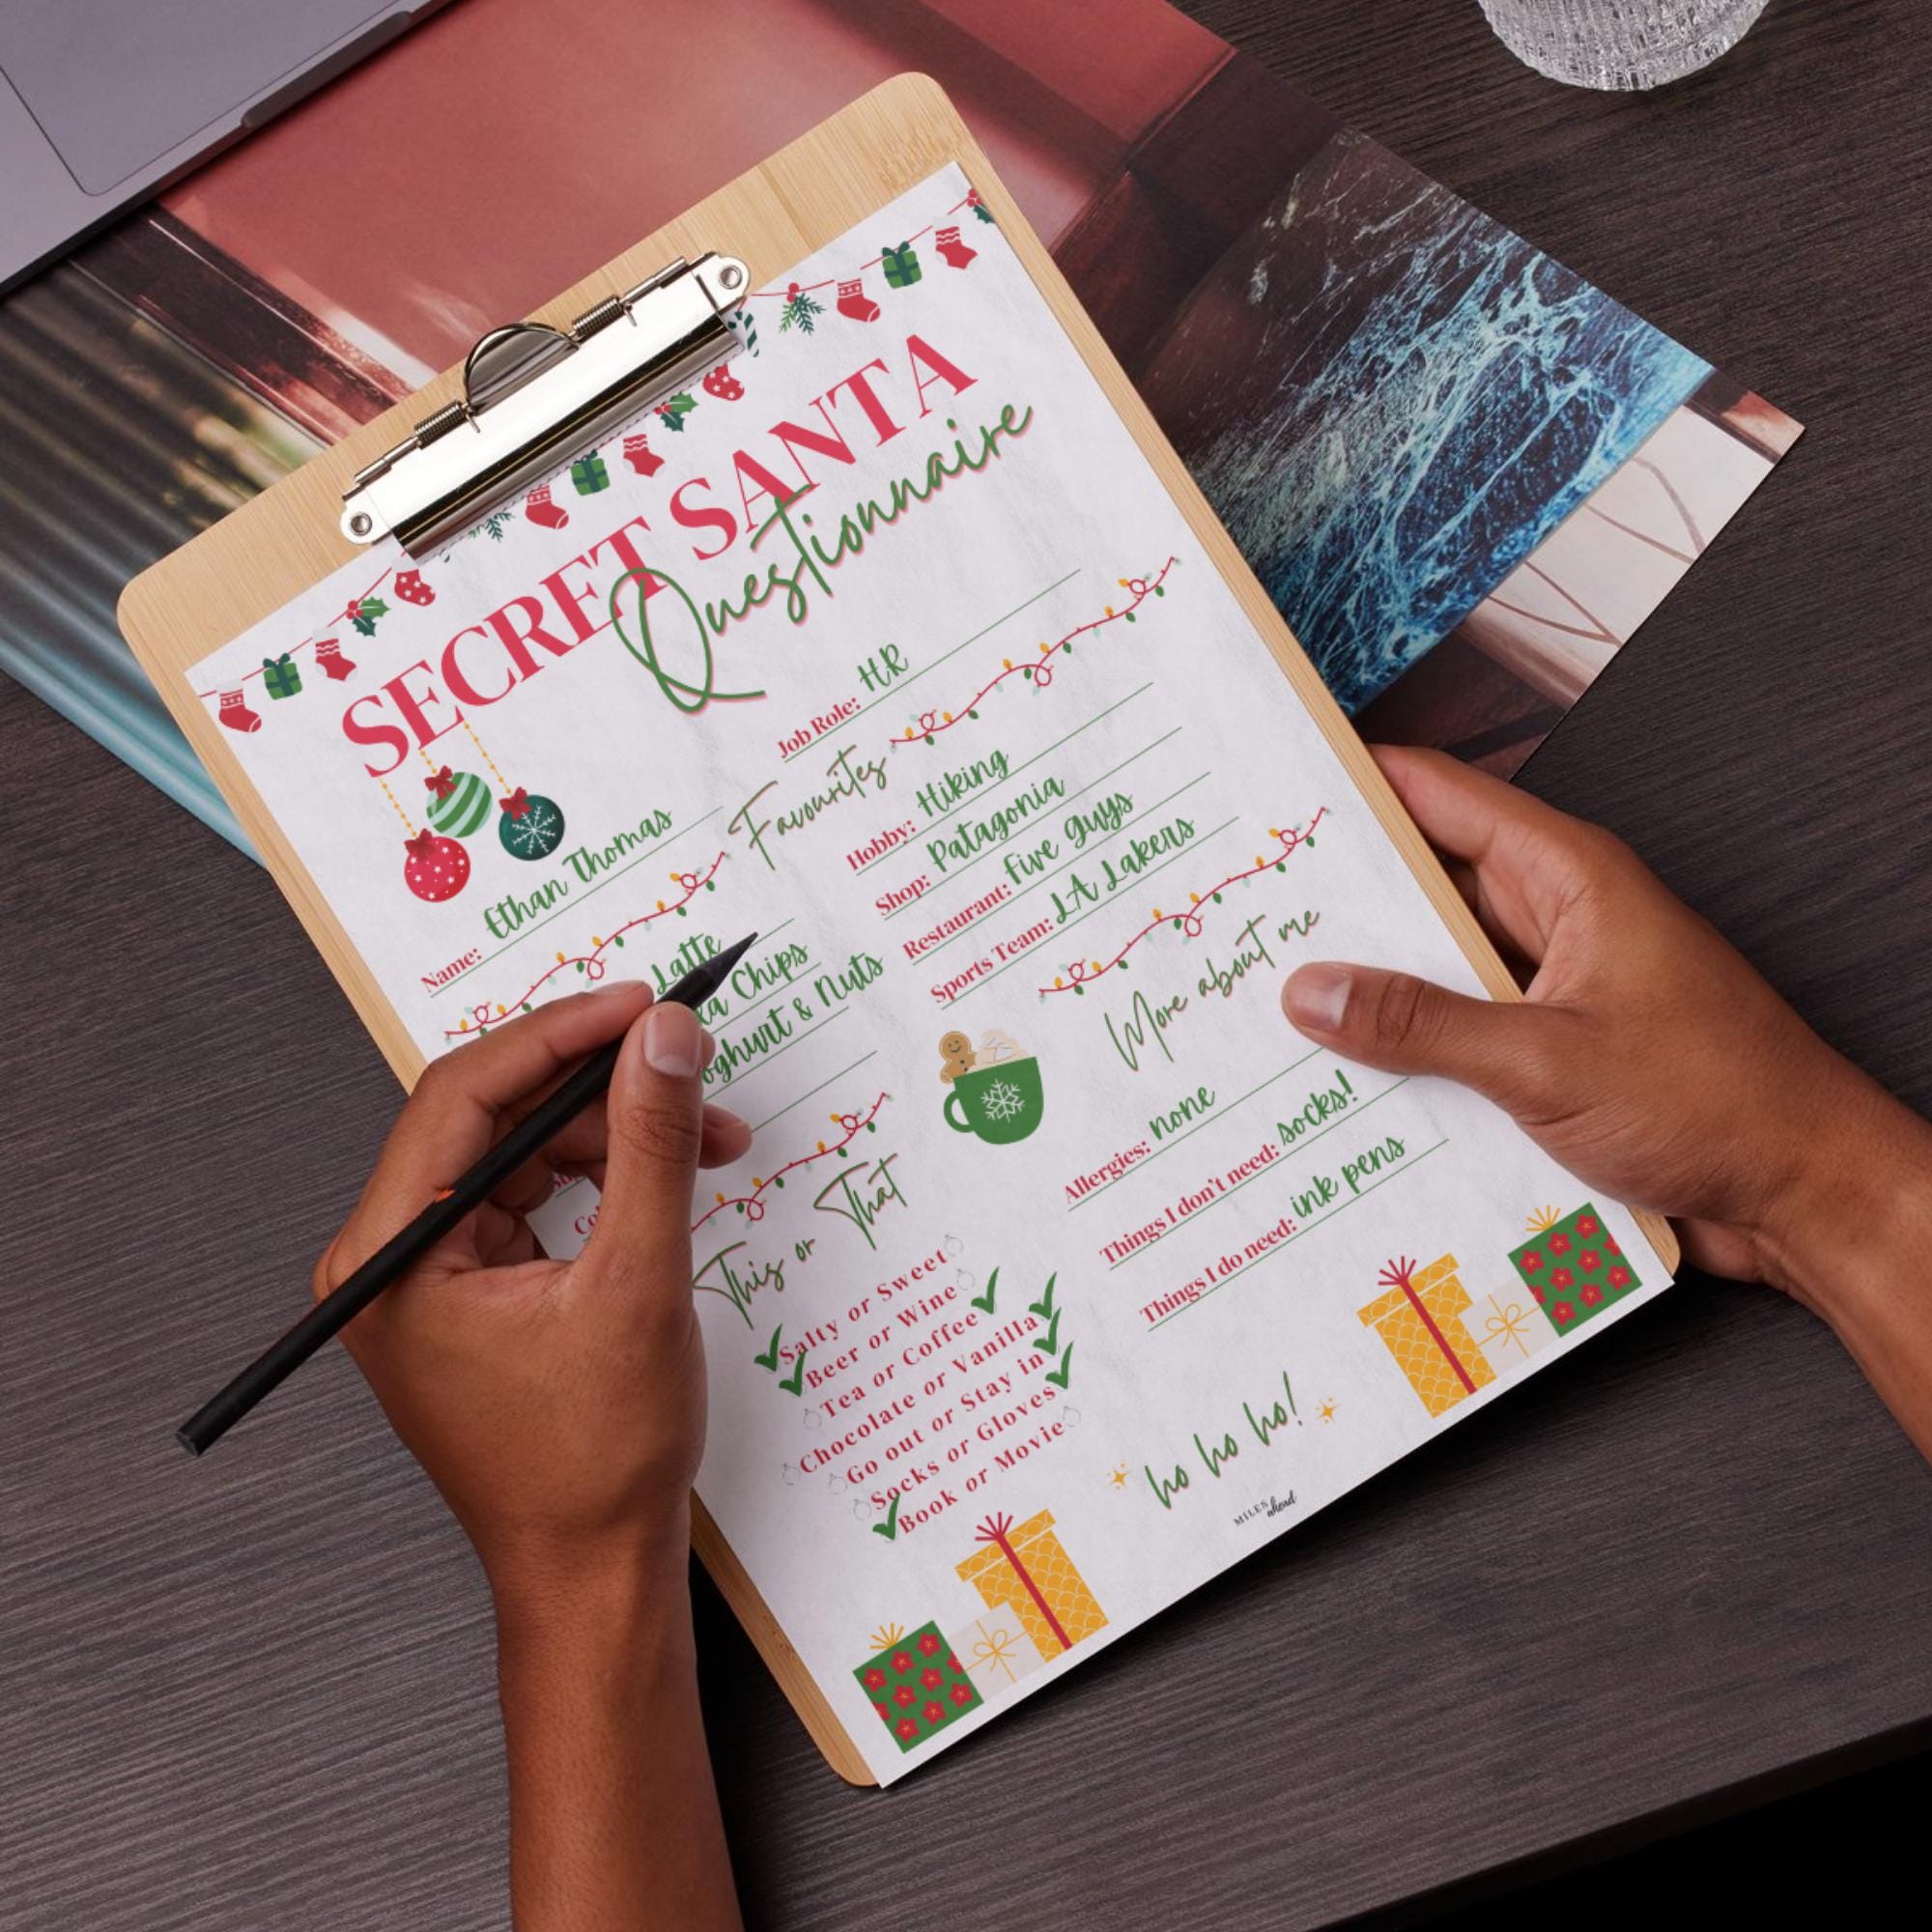 SECRET SANTA
Questionnaire
Name: Ethan Thomas
Job Role: HR
Latte
Chips
& Nuts
This or That
Salty or Sweet
Beer or Wine
Tea or Coffee
Chocolate or Vanilla
Go out or Stay in
Socks or Gloves
Book or Movie
Favourites
Hobby: Hiking
Shop: Patagonia
Restaurant: Five Guys
Sports Team: LA Lakers
More about me
Allergies: none
Things I don't need: socks!
Things I do need: ink pens
ho ho ho!
MILES
ahead